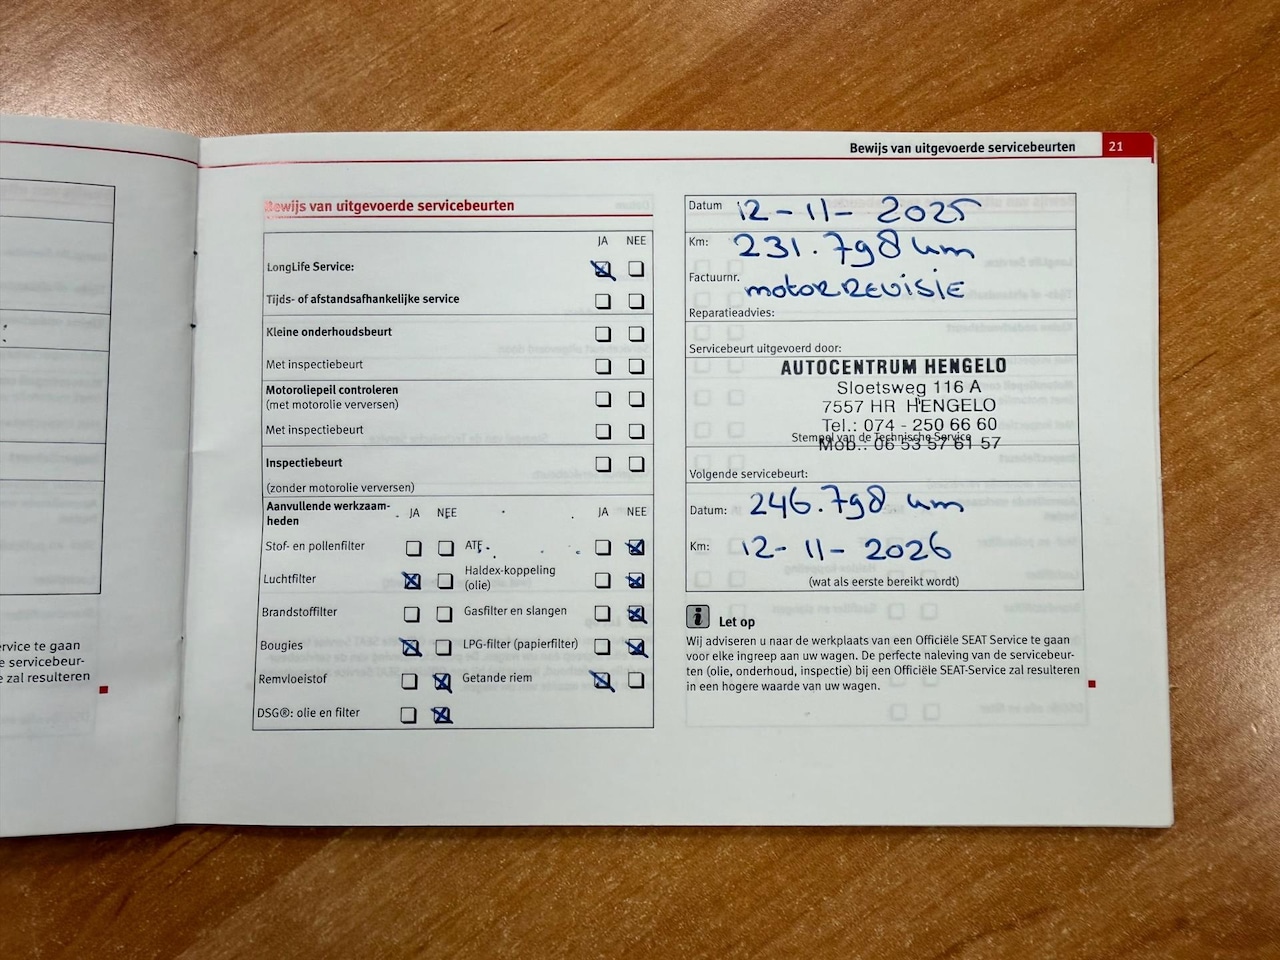 Bewijs van uitgevoerde servicebeurten 21
rvice te gaan
e servicebeur-
e zal resulteren
Bewijs van uitgevoerde servicebeurten
JA NEE
LongLife Service:
Tijds- of afstandsafhankelijke service
Kleine onderhoudsbeurt
Met inspectiebeurt
Motoroliepeil controleren
(met motorolie verversen)
Met inspectiebeurt
Inspectiebeurt
(zonder motorolie verversen)
Aanvullende werkzaam-
heden
JA NEE JA NEE
Stof- en pollenfilter ATF
Luchtfilter Haldex-koppeling
(olie)
Brandstoffilter Gasfilter en slangen
Bougies LPG-filter (papierfilter)
Remvloeistof Getande riem
DSG®: olie en filter
Datum 12-11-2025
Km: 231.798 km
Factuurnr. motorREVISIE
Reparatieadvies:
Servicebeurt uitgevoerd door:
AUTOCENTRUM HENGELO
Sloetsweg 116 A
7557 HR HENGELO
Tel.: 074 - 250 66 60
Stempel van de Technische Service
Mob.: 06 53 57 61 57
Volgende servicebeurt:
Datum: 246.798 km
Km: 12-11-2026
(wat als eerste bereikt wordt)
Let op
Wij adviseren u naar de werkplaats van een Officiële SEAT Service te gaan
voor elke ingreep aan uw wagen. De perfecte naleving van de servicebeur-
ten (olie, onderhoud, inspectie) bij een Officiële SEAT-Service zal resulteren
in een hogere waarde van uw wagen.